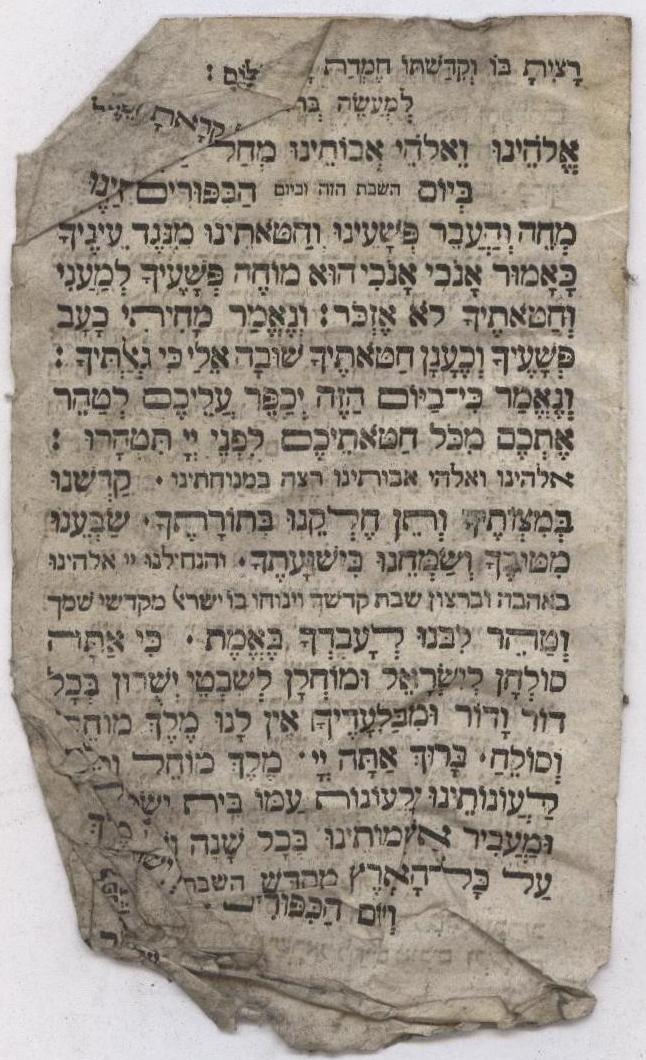 רָצִיתָ בּוֹ וְקִדַּשְׁתּוֹ חֶמְדַּת
לְמַעֲשֵׂה
קָרָאתָ
אֱלֹהֵינוּ וֵאלֹהֵי אֲבוֹתֵינוּ מְחַל
בְּיוֹם השבת הזה וביום הַכִּפּוּרִים הַזֶּה
מְחֵה וְהַעֲבֵר פְּשָׁעֵינוּ וְחַטֹּאתֵינוּ מִנֶּגֶד עֵינֶיךָ
כָּאָמוּר אָנֹכִי אָנֹכִי הוּא מוֹחֶה פְּשָׁעֶיךָ לְמַעֲנִי
וְחַטֹּאתֶיךָ לֹא אֶזְכֹּר: וְנֶאֱמַר מָחִיתִי כָעָב
פְּשָׁעֶיךָ וְכֶעָנָן חַטֹּאתֶיךָ שׁוּבָה אֵלַי כִּי גְאַלְתִּיךָ:
וְנֶאֱמַר כִּי־בַיּוֹם הַזֶּה יְכַפֵּר עֲלֵיכֶם לְטַהֵר
אֶתְכֶם מִכֹּל חַטֹּאתֵיכֶם לִפְנֵי יְיָ תִּטְהָרוּ:
אלהינו ואלהי אבותינו רצה במנוחתינו. קַדְּשֵׁנוּ
בְּמִצְוֹתֶיךָ וְתֵן חֶלְקֵנוּ בְּתוֹרָתֶךָ. שַׂבְּעֵנוּ
מִטּוּבֶךָ וְשַׂמְּחֵנוּ בִּישׁוּעָתֶךָ. והנחילנו יי אלהינו
באהבה וברצון שבת קדשך וינוחו בו ישראל מקדשי שמך
וְטַהֵר לִבֵּנוּ לְעָבְדְּךָ בֶּאֱמֶת. כִּי אַתָּה
סוֹלְחָן לְיִשְׂרָאֵל וּמוֹחֳלָן לְשִׁבְטֵי יְשֻׁרוּן בְּכָל
דּוֹר וָדוֹר וּמִבַּלְעָדֶיךָ אֵין לָנוּ מֶלֶךְ מוֹחֵל
וְסוֹלֵחַ. בָּרוּךְ אַתָּה יְיָ. מֶלֶךְ מוֹחֵל
לַעֲוֹנוֹתֵינוּ וְלַעֲוֹנוֹת עַמּוֹ בֵּית
וּמַעֲבִיר אַשְׁמוֹתֵינוּ בְּכָל שָׁנָה
עַל כָּל־הָאָרֶץ מְקַדֵּשׁ השבת
וְיוֹם הַכִּפּוּרִים